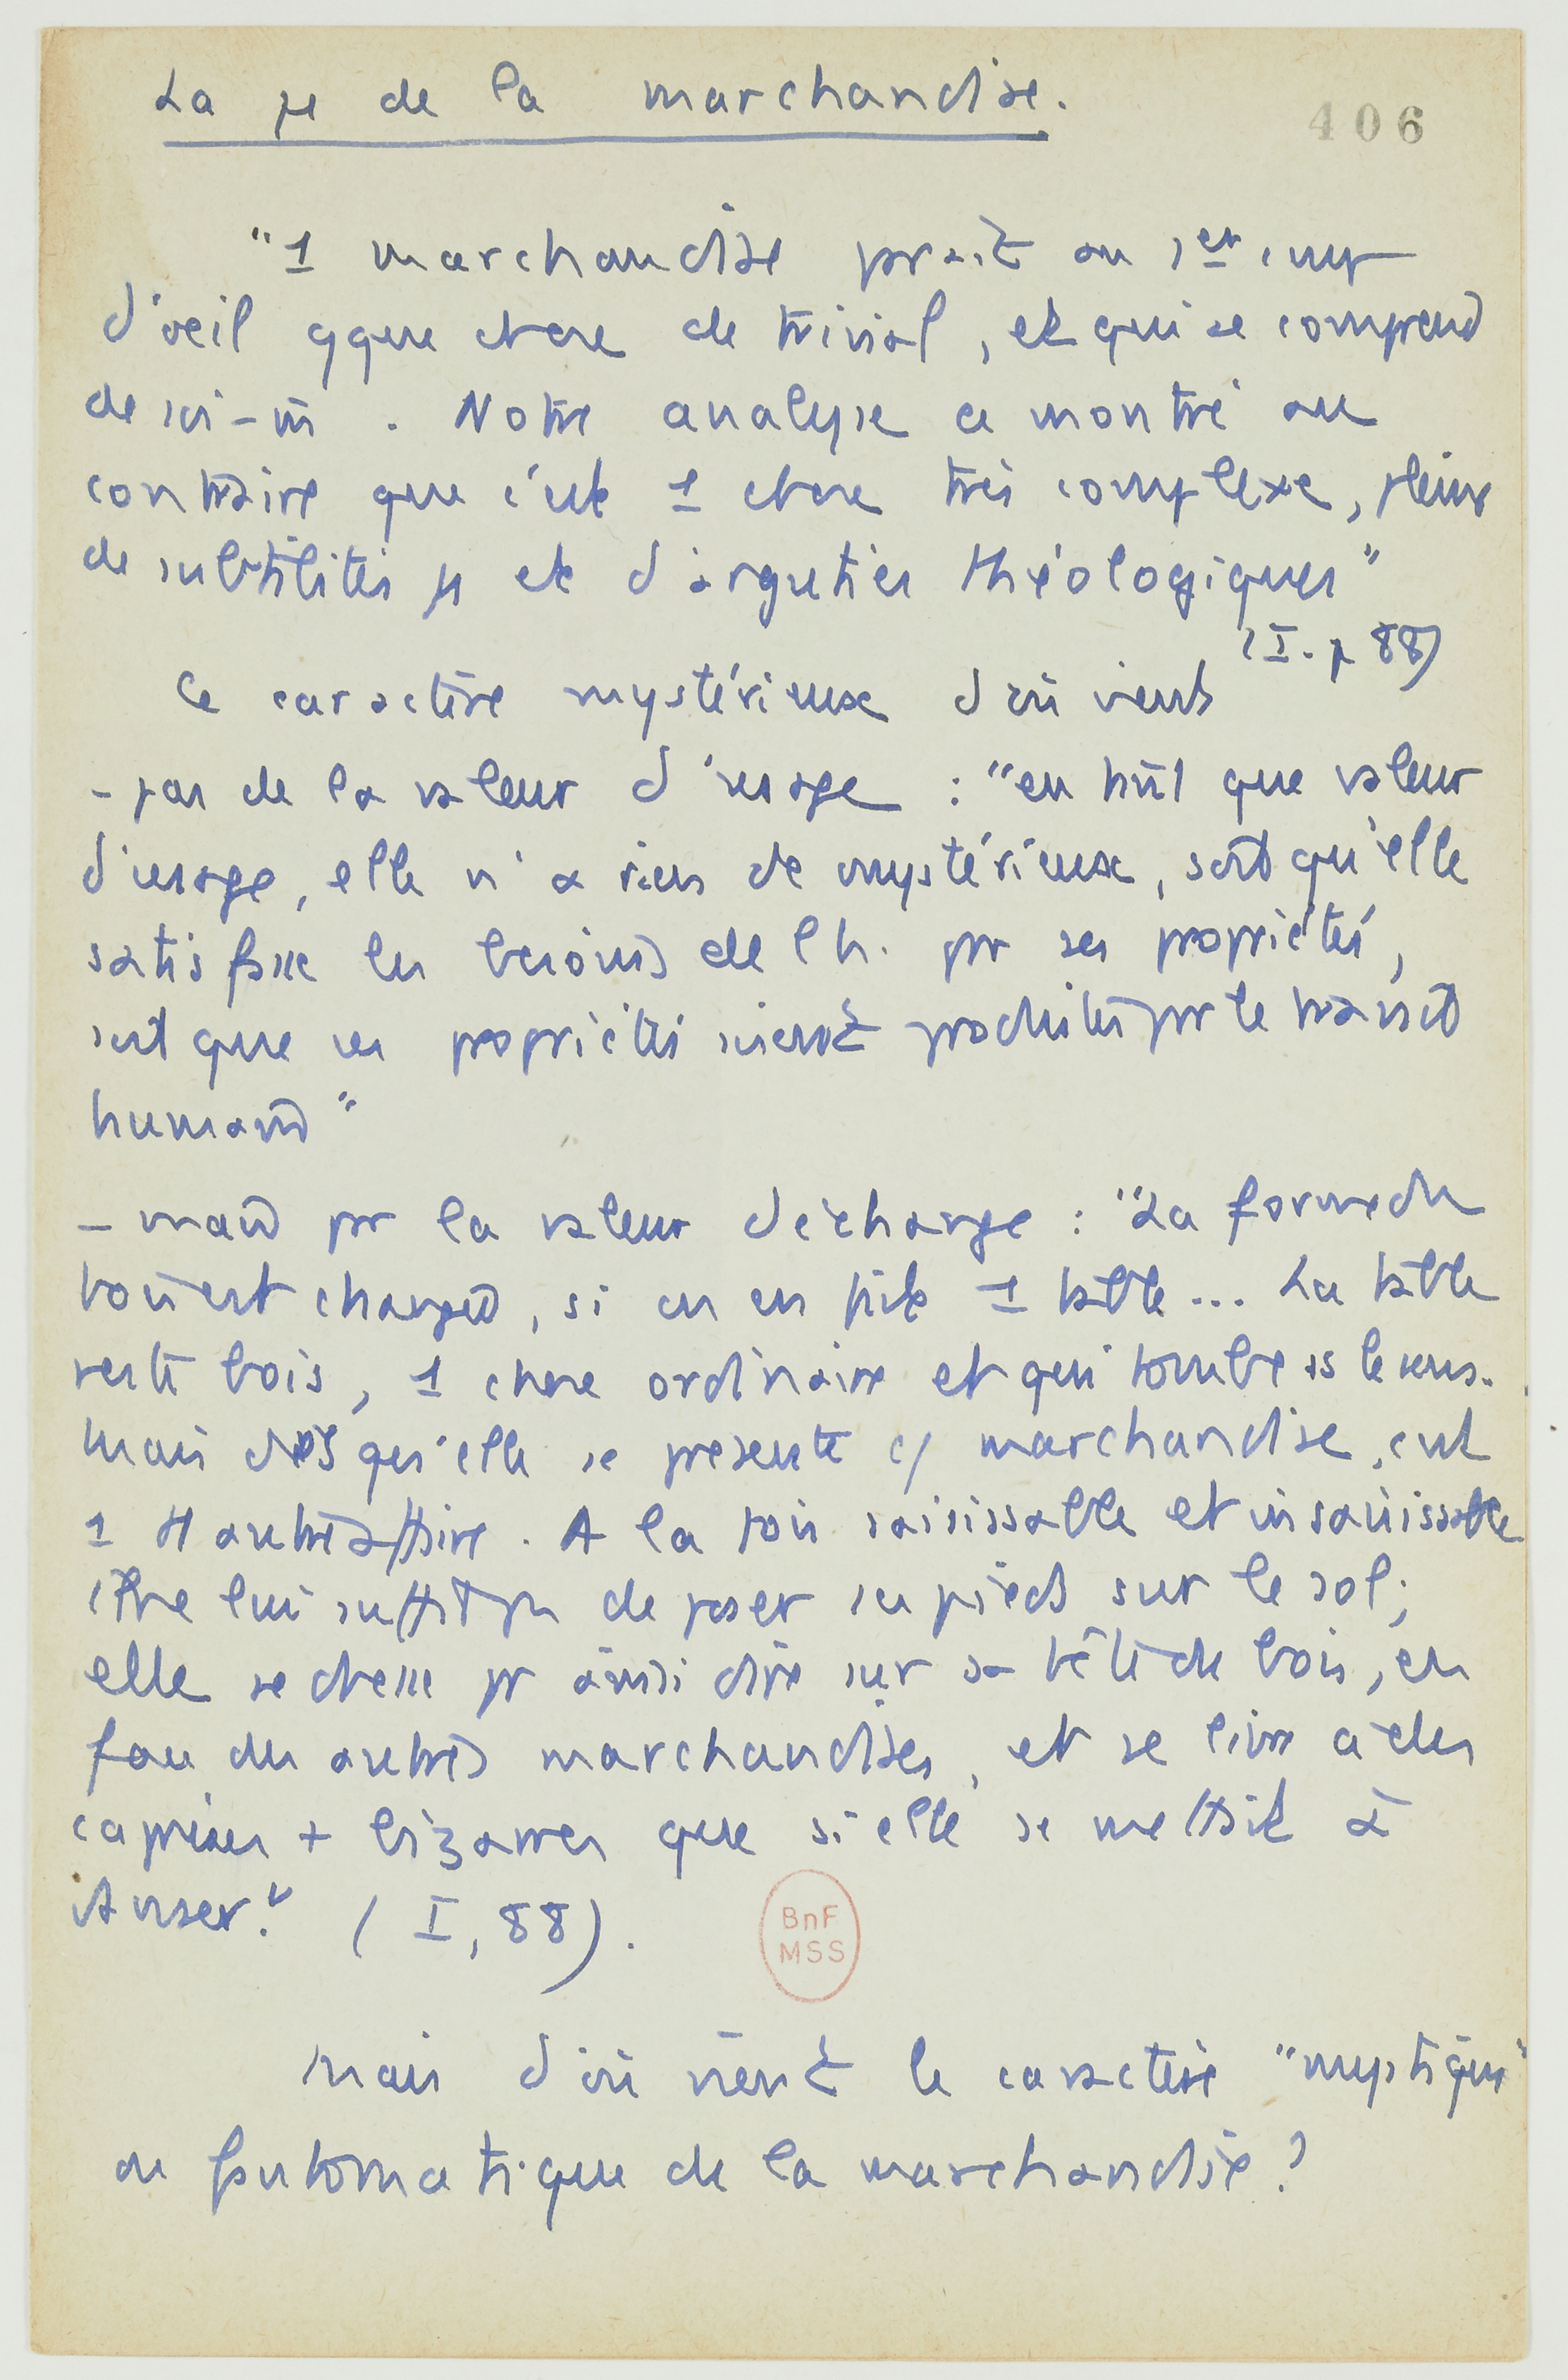 La μ de la marchandise.
406
"1 marchandise paraît au 1er coup
d'oeil qque chose de trivial, et qui se comprend
de soi-m̄. Notre analyse a montré au
contraire que c'est 1 chose très complexe, pleine
de subtilités μ et d'arguties théologiques"
(I. p 88)
Ce caractère mystérieux d'où vient
- pas de la valeur d'usage : "en tant que valeur
d'usage, elle n'a rien de mystérieux, soit qu'elle
satisfasse les besoins de l'h. pr ses propriétés,
soit que ses propriétés soient produites pr le travail
humain"
- mais pr la valeur d'échange : "La forme du
bois est changée, si on en fait 1 table... La table
reste bois, 1 chose ordinaire et qui tombe ss le sens.
Mais dès qu'elle se présente c/ marchandise, c'est
1 tt autre affaire. A la fois saisissable et insaisissable
il ne lui suffit pas de poser ses pieds sur le sol;
elle se dresse pr ainsi dire sur sa tête de bois, en
face des autres marchandises, et se livre à des
caprices + bizarres que si elle se mettait à
danser." (I, 88).
BnF
MSS
Mais d'où vient le caractère "mystique"
ou fantomatique de la marchandise ?